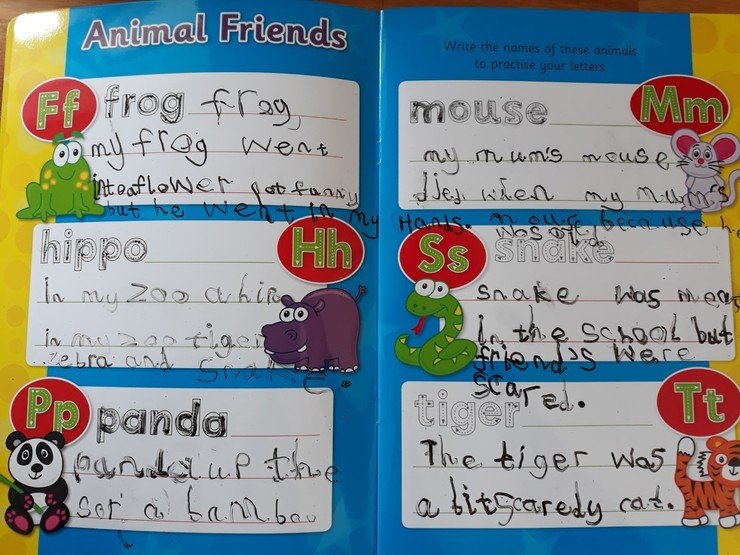 Animal Friends
Ff
frog frog
my frog went
flower pot funny
but he went in my Hands.
Hh
hippo
in my zoo a
in my zoo tiger
zebra and Snake
Pp
panda
panda up the
for a bambou
Write the names of these animals
to practise your letters
Mm
mouse
my mum's mouse
died when my mum's
because he
was
Ss
snake
snake was mean
in the school but
friend's were
scared.
Tt
tiger
The tiger was
a bit scaredy cat.